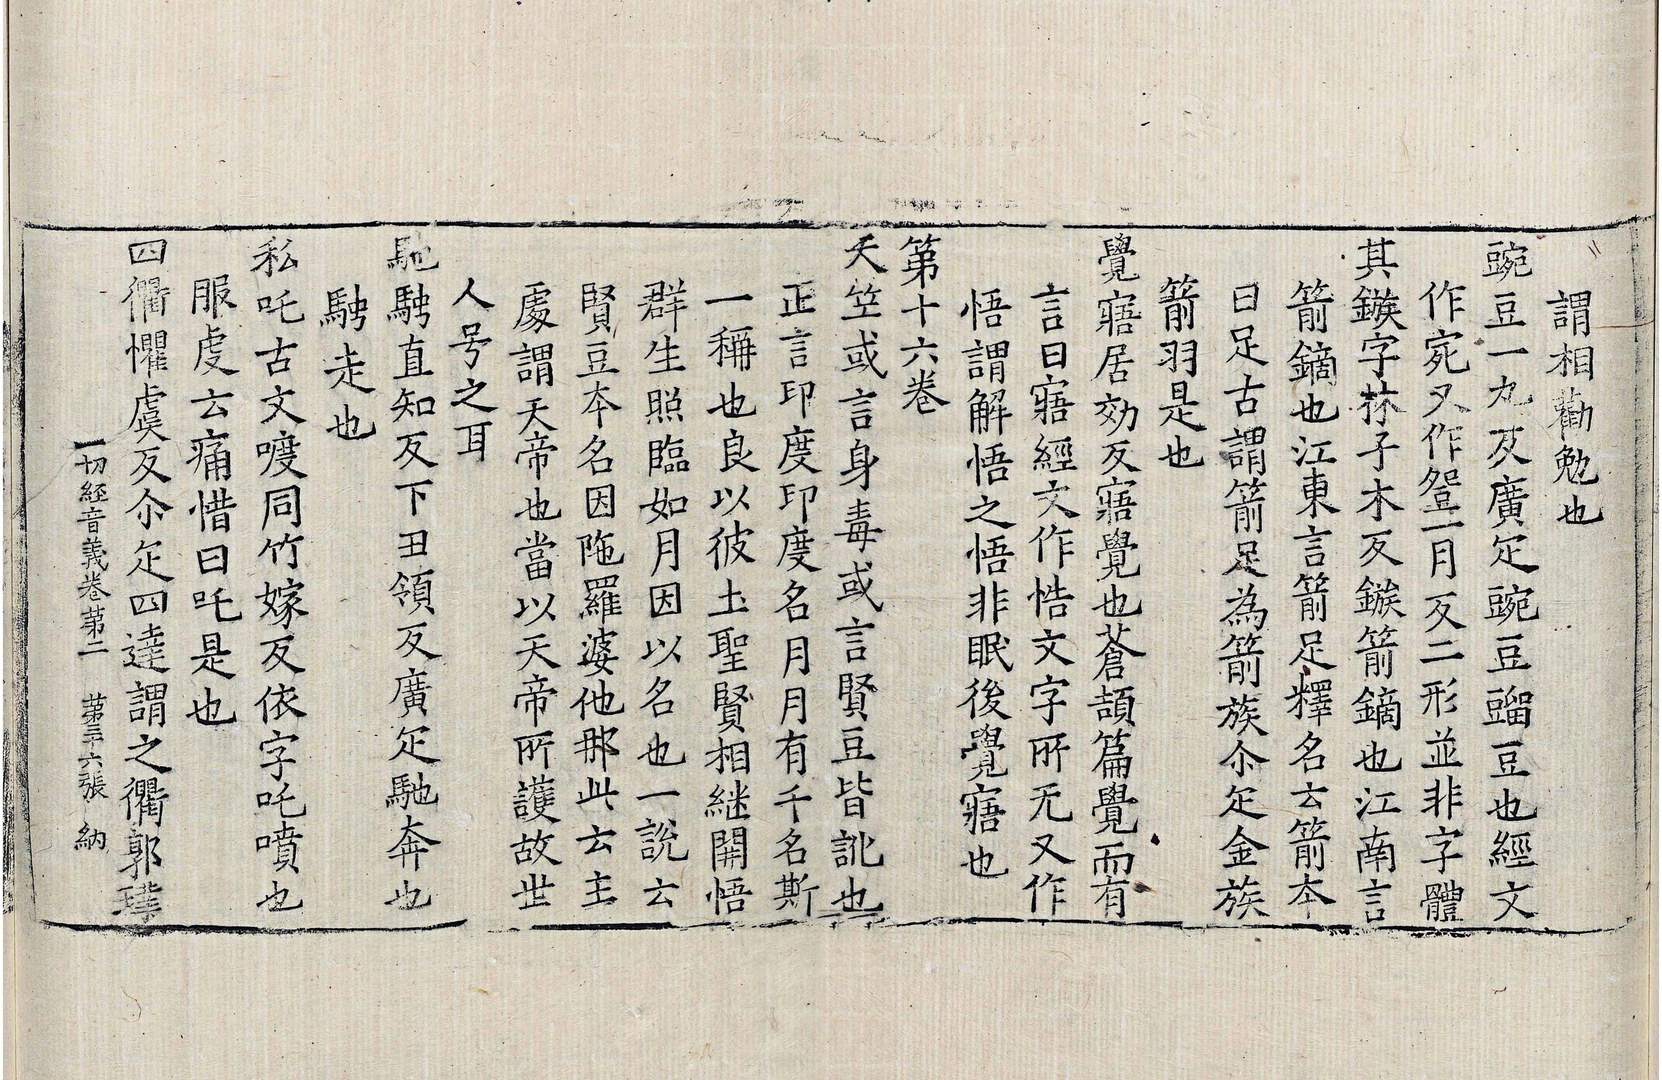 謂相勸勉也
豌豆一九反廣疋豌豆䝁豆也經文
作宛又作登一月反二形並非字體
其鏃字林子木反鏃箭鏑也江南言
箭鏑也江東言箭足釋名云箭本
曰足古謂箭足為箭族尒疋金族
箭羽是也
覺寤居効反寤覺也蒼頡篇覺而有
言曰寤經文作悎文字所无又作
悟謂解悟之悟非眠後覺寤也
第十六卷
天竺或言身毒或言賢豆皆訛也
正言印度印度名月月有千名斯
一稱也良以彼土聖賢相継開悟
群生照臨如月因以名也一說云
賢豆本名因陁羅婆他那此云主
處謂天帝也當以天帝所護故世
人号之耳
馳騁直知反下丑領反廣疋馳奔也
騁走也
私吒古文嚘同竹嫁反依字吒噴也
服虔云痛惜曰吒是也
四衢懼虞反尒疋四達謂之衢郭璞
一切經音義卷第二 第三十六張 納